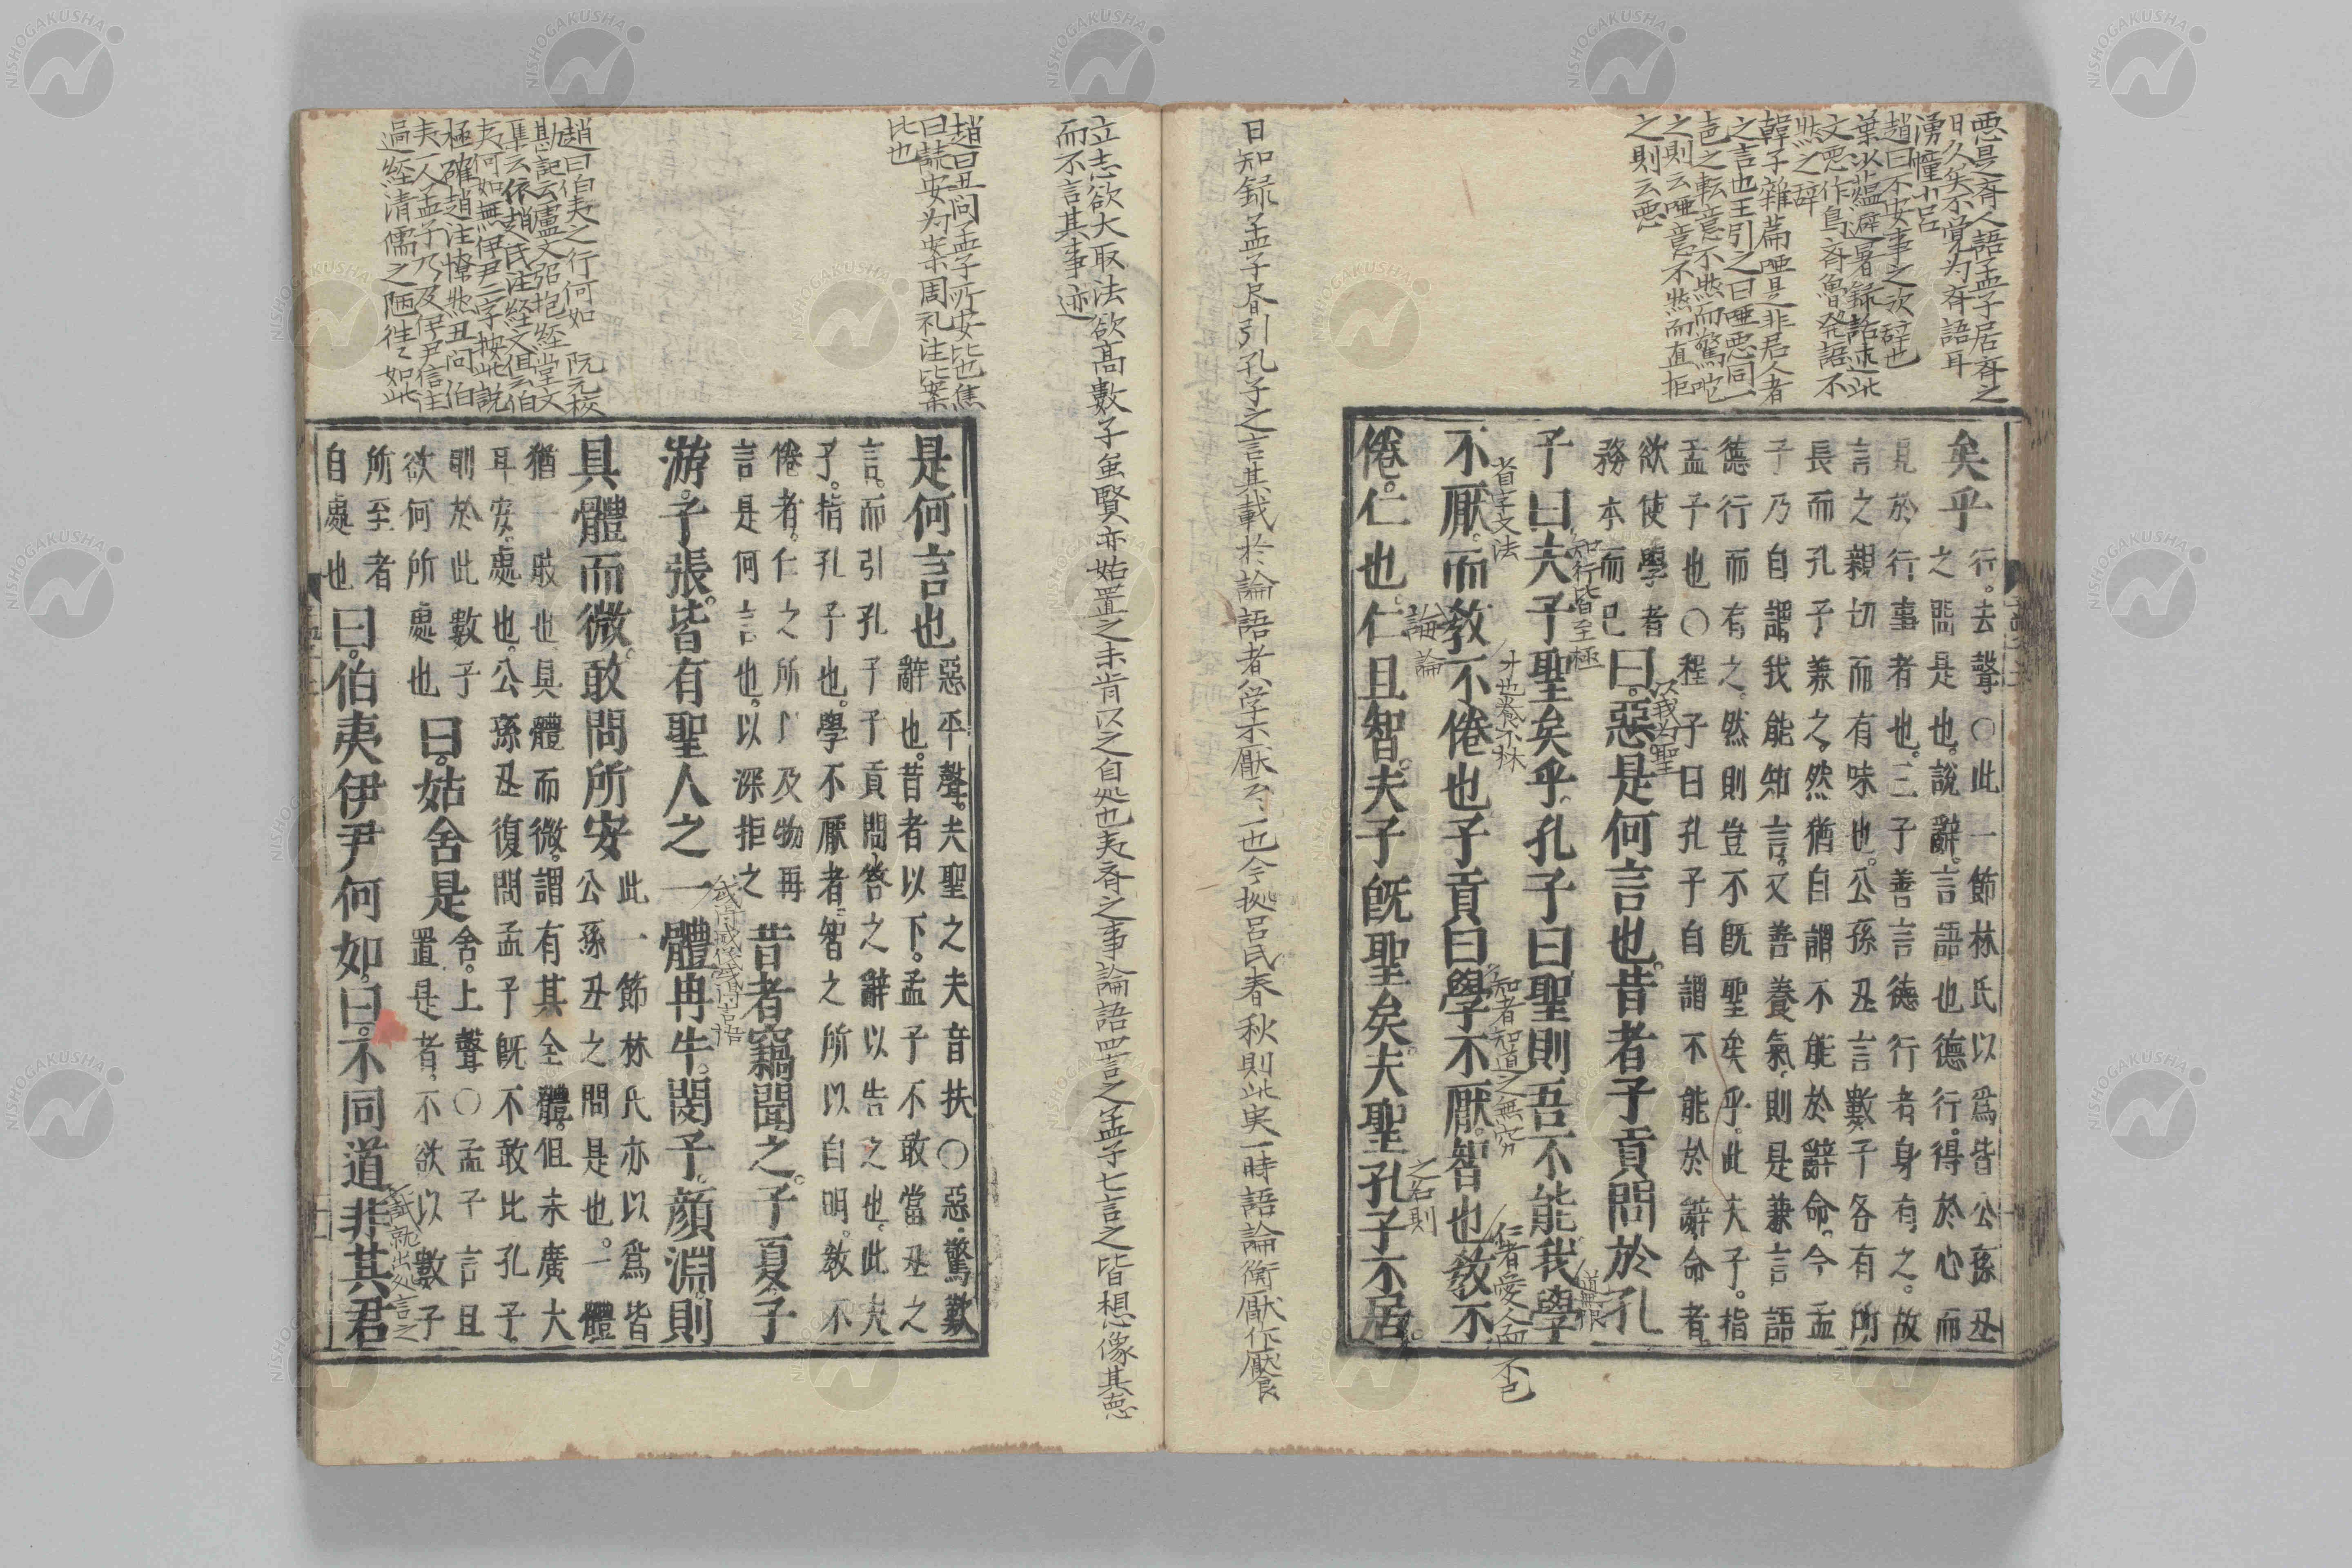 惡是斉人語孟子居斉之
日久矣不覚为斉語耳
湧幢小品
趙曰不安事之次辞也
葉少蘊避暑録話述此
文悪作烏斉魯発語不
然之辞
韓子雜篇唖是非君人者
之言也王引之曰唖悪同一
声之転意不然而驚咤
之則云唖意不然而直拒
之則云悪
矣乎
行。去聲○此一節林氏以爲皆公孫丑
之問是也。說辭。言語也德行。得於心而
見於行事者也。三子善言德行者身有之。故
言之親切而有味也。公孫丑言數子各有所
長而孔子兼之。然猶自謂不能於辭命。今孟
子乃自謂我能知言。又善養氣。則是兼言語
德行而有之。然則豈不既聖矣乎。此夫子。指
孟子也○程子曰孔子自謂不能於辭命者。
欲使學者
務本而已
曰。惡是何言也。昔者子貢問於孔
以我为聖
子曰夫子聖矣乎。孔子曰聖則吾不能。我學
知行皆至極
道無限
不厭。而敎不倦也子貢曰學不厭。智也敎不
省字文法
知者知道之無穷
仁者愛人而不已
倦。仁也。仁且智。夫子旣聖矣。夫聖孔子不居。
論論
之名則
日知録孟子昬引孔子之言其載於論語者八学不厭云々一也今拠呂氏春秋則此実一時語論衡厭作饜
立志欲大取法欲高數子虽賢亦姑置之未肯以之自処也夷斉之事論語四言之孟子七言之皆想像其悳
而不言其事迹
趙曰丑问孟子所安比也焦
曰読安为案周礼注比案
比也
趙曰伯夷之行何如　阮元校
勘記云盧文弨抱経堂文
集云依趙氏注経文但云伯
夷何如無伊尹二字按此説
極確趙注憭然丑问伯
夷一人孟子乃及伊尹信注
過経清儒之陋往々如此
是何言也
惡平聲。夫聖之夫音扶○惡。驚歎
辭也。昔者以下。孟子不敢當丑之
言。而引孔子子貢問答之辭以告之也。此夫
子。指孔子也。學不厭者。智之所以自明。敎不
倦者。仁之所以及物。再
言是何言也。以深拒之
昔者竊聞之。子夏子
游。子張。皆有聖人之一體冉牛。閔子。顏淵。則
具體而微。敢問所安
此一節林氏亦以爲皆
公孫丑之問是也。一體
猶一肢也具體而微。謂有其全體。但未廣大
耳安。處也。公孫丑復問孟子旣不敢比孔子。
則於此數子
欲何所處也
曰。姑舍是
舍。上聲○孟子言且
置是者。不欲以數子
所至者
自處也
曰。伯夷伊尹何如。曰。不同道非其君
試就出処言之